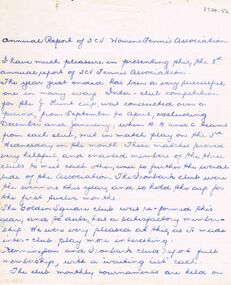 3724.52
Annual Report of J.C.V. Womens Tennis Association
I have much pleasure in presenting this, the 8th
annual report of JCV Tennis Association.
The year just ended has been a very successful
one in many ways. Inter-club competition
for the J. Hunt cup was conducted over a
period, from September to April, excluding
December and January, when A B and C teams
from each club, met in match play on the 3rd
Wednesday in the month. These matches proved
very helpful, and enabled members of the three
clubs to meet each other, and to further the social
side of the Association. The Ironbark club were
the winners this year, and so hold the cup for
the first twelve months.
The Golden Square club was re-formed this
year, and to date, has a satisfactory member-
ship. We were very pleased at this, as it made
inter-club play more interesting.
Kennington and Ironbark clubs, report full
membership, with a waiting list each.
The club monthly tournaments are held on